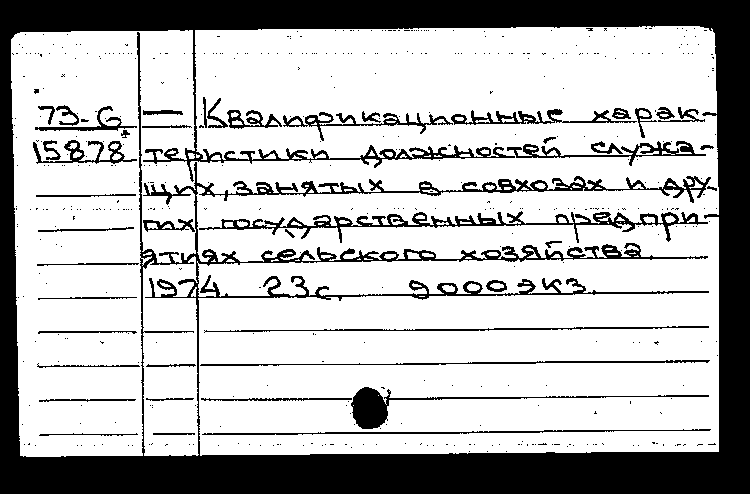 73-6 — Квалификационные харак-
15878 теристики должностей служа-
щих, занятых в совхозах и дру-
гих государственных предпри-
ятиях сельского хозяйства.
1974. 23с. 9000экз.